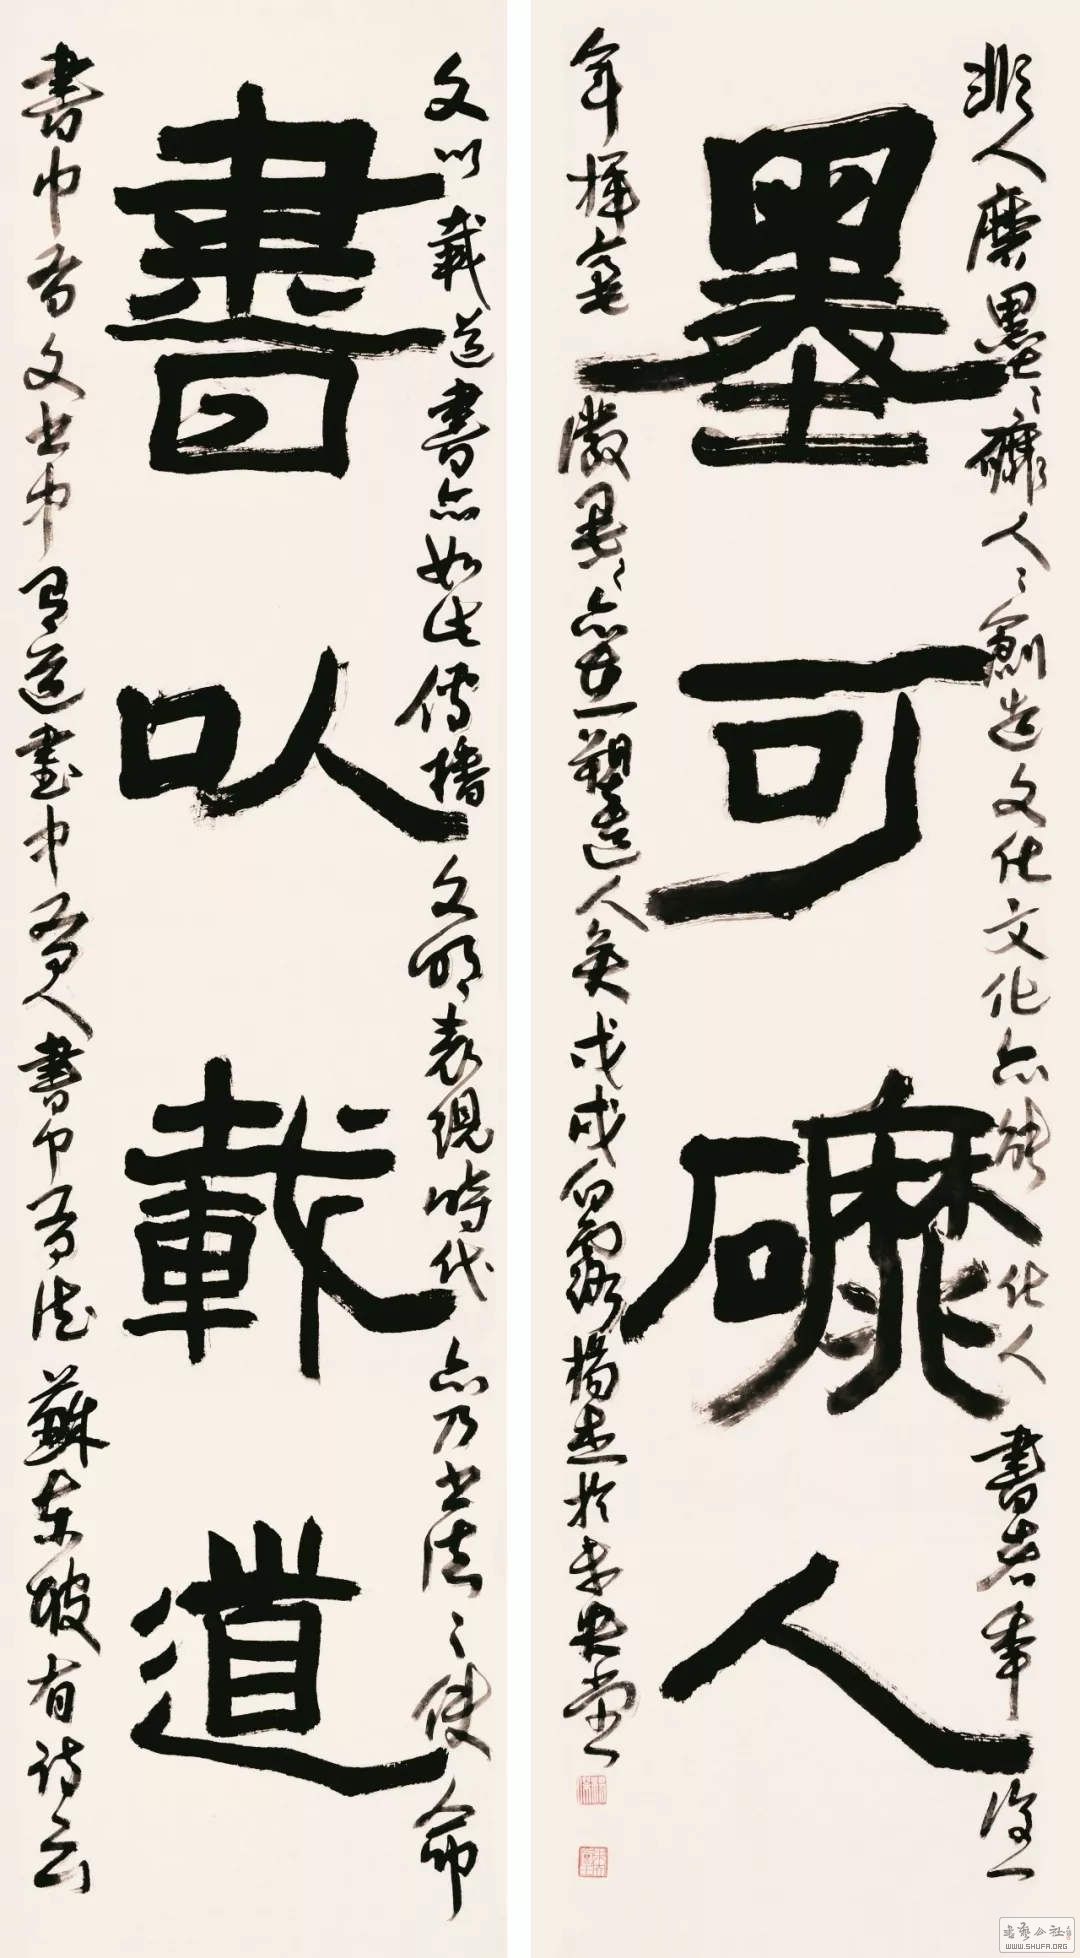 書以載道
文以載道書亦如此傳播文明表現時代亦乃书法之使命
書中有文书中有道書中有人書中有法蘇東坡有詩云
墨可磨人
非人磨墨墨磨人人創造文化文化亦能化人書者年復一
年揮毫潑墨墨亦在塑造人矣戊戌白露楊杰於未央堂
书艺公社
WWW.SHUFA.ORG